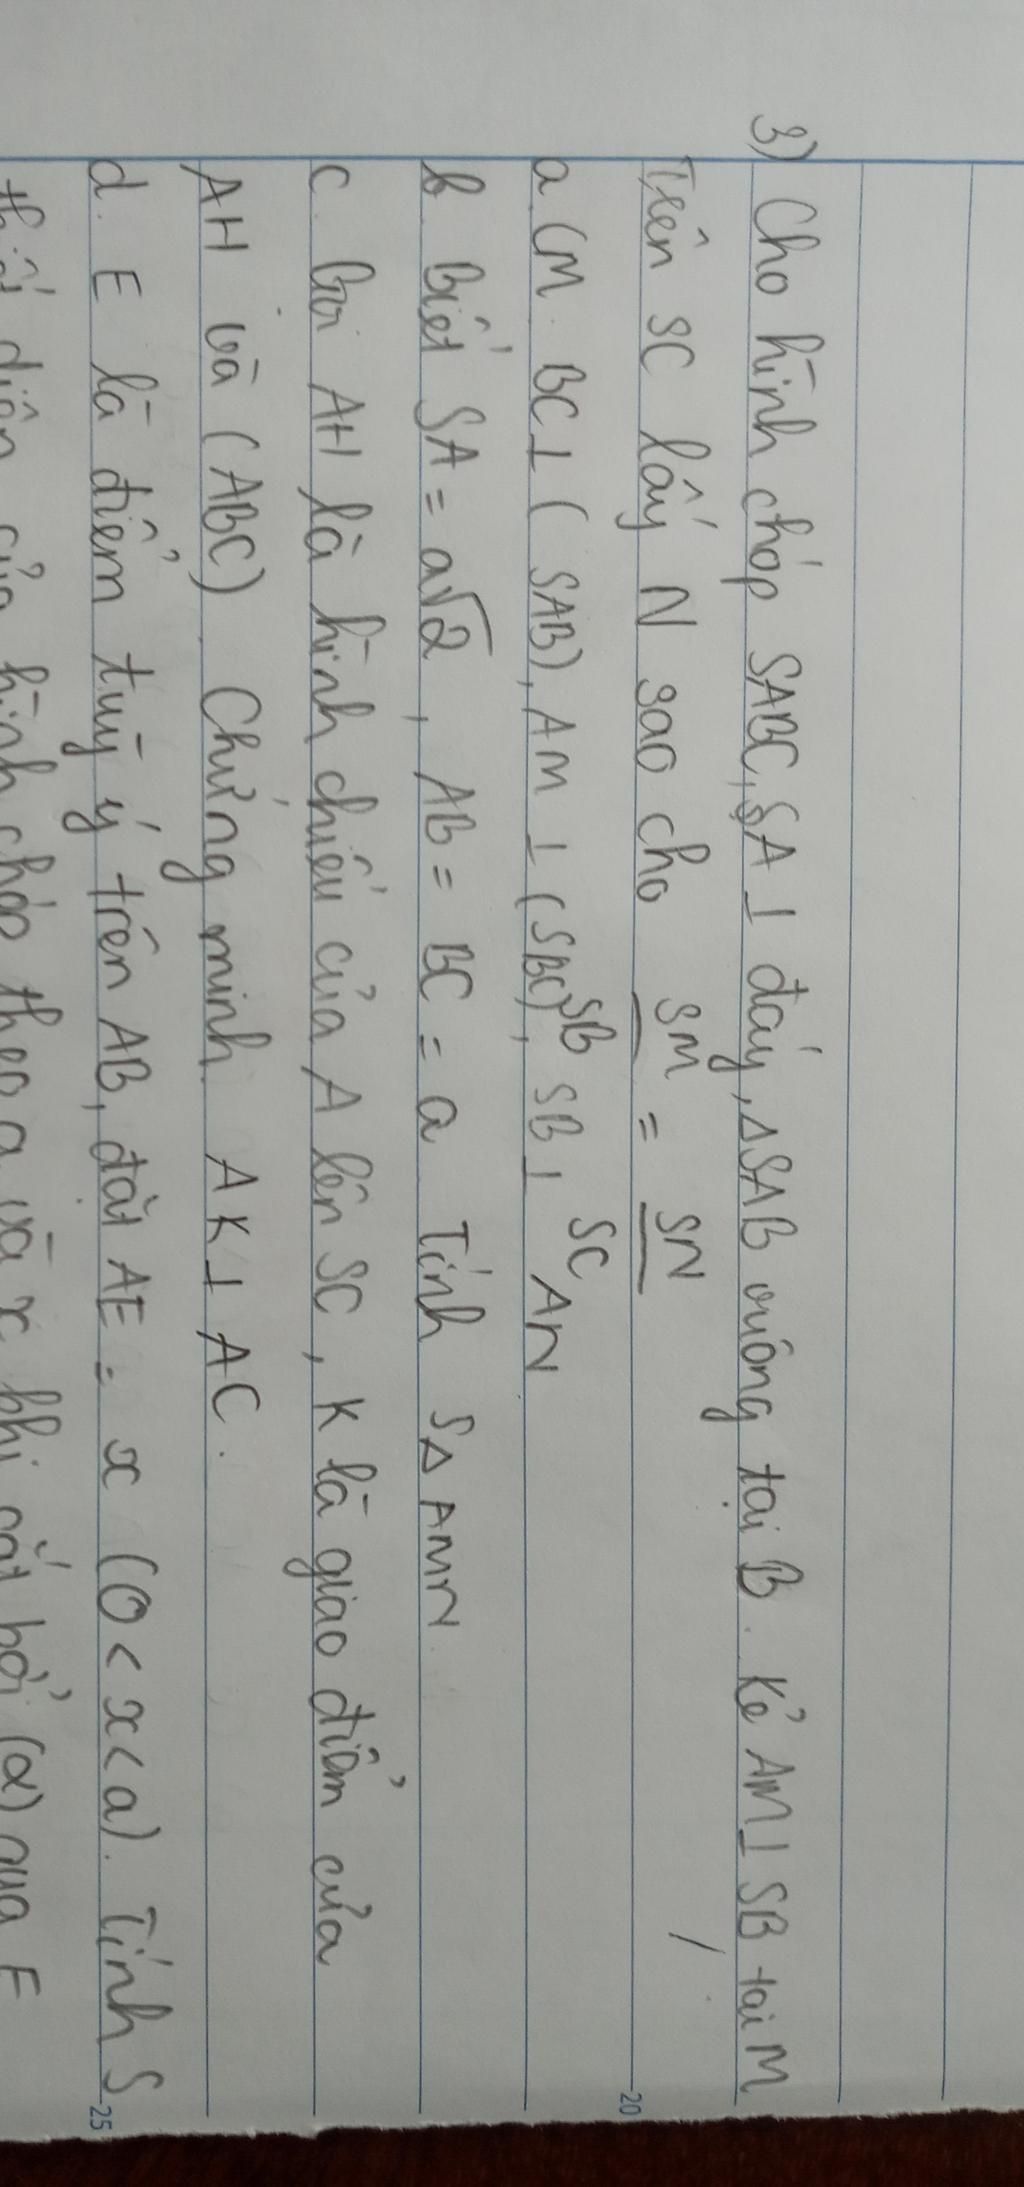 3) Cho hình chóp SABC, SA ⊥ đáy, ΔSAB vuông tại B. Kẻ AM ⊥ SB tại M
Trên SC lấy N sao cho SM/SB = SN/SC
a. CM. BC ⊥ (SAB), AM ⊥ (SBC), SB ⊥ AN
b. Biết SA = a√2, AB = BC = a Tính SΔAMN.
c. Gọi AH là hình chiếu của A lên SC, K là giao điểm của
AH và (ABC). Chứng minh. AK ⊥ AC.
d. E là điểm tuỳ ý trên AB, đặt AE = x (0 < x < a). Tính S
thiết diện của hình chóp theo a và x khi cắt bởi (α) qua E
20
25